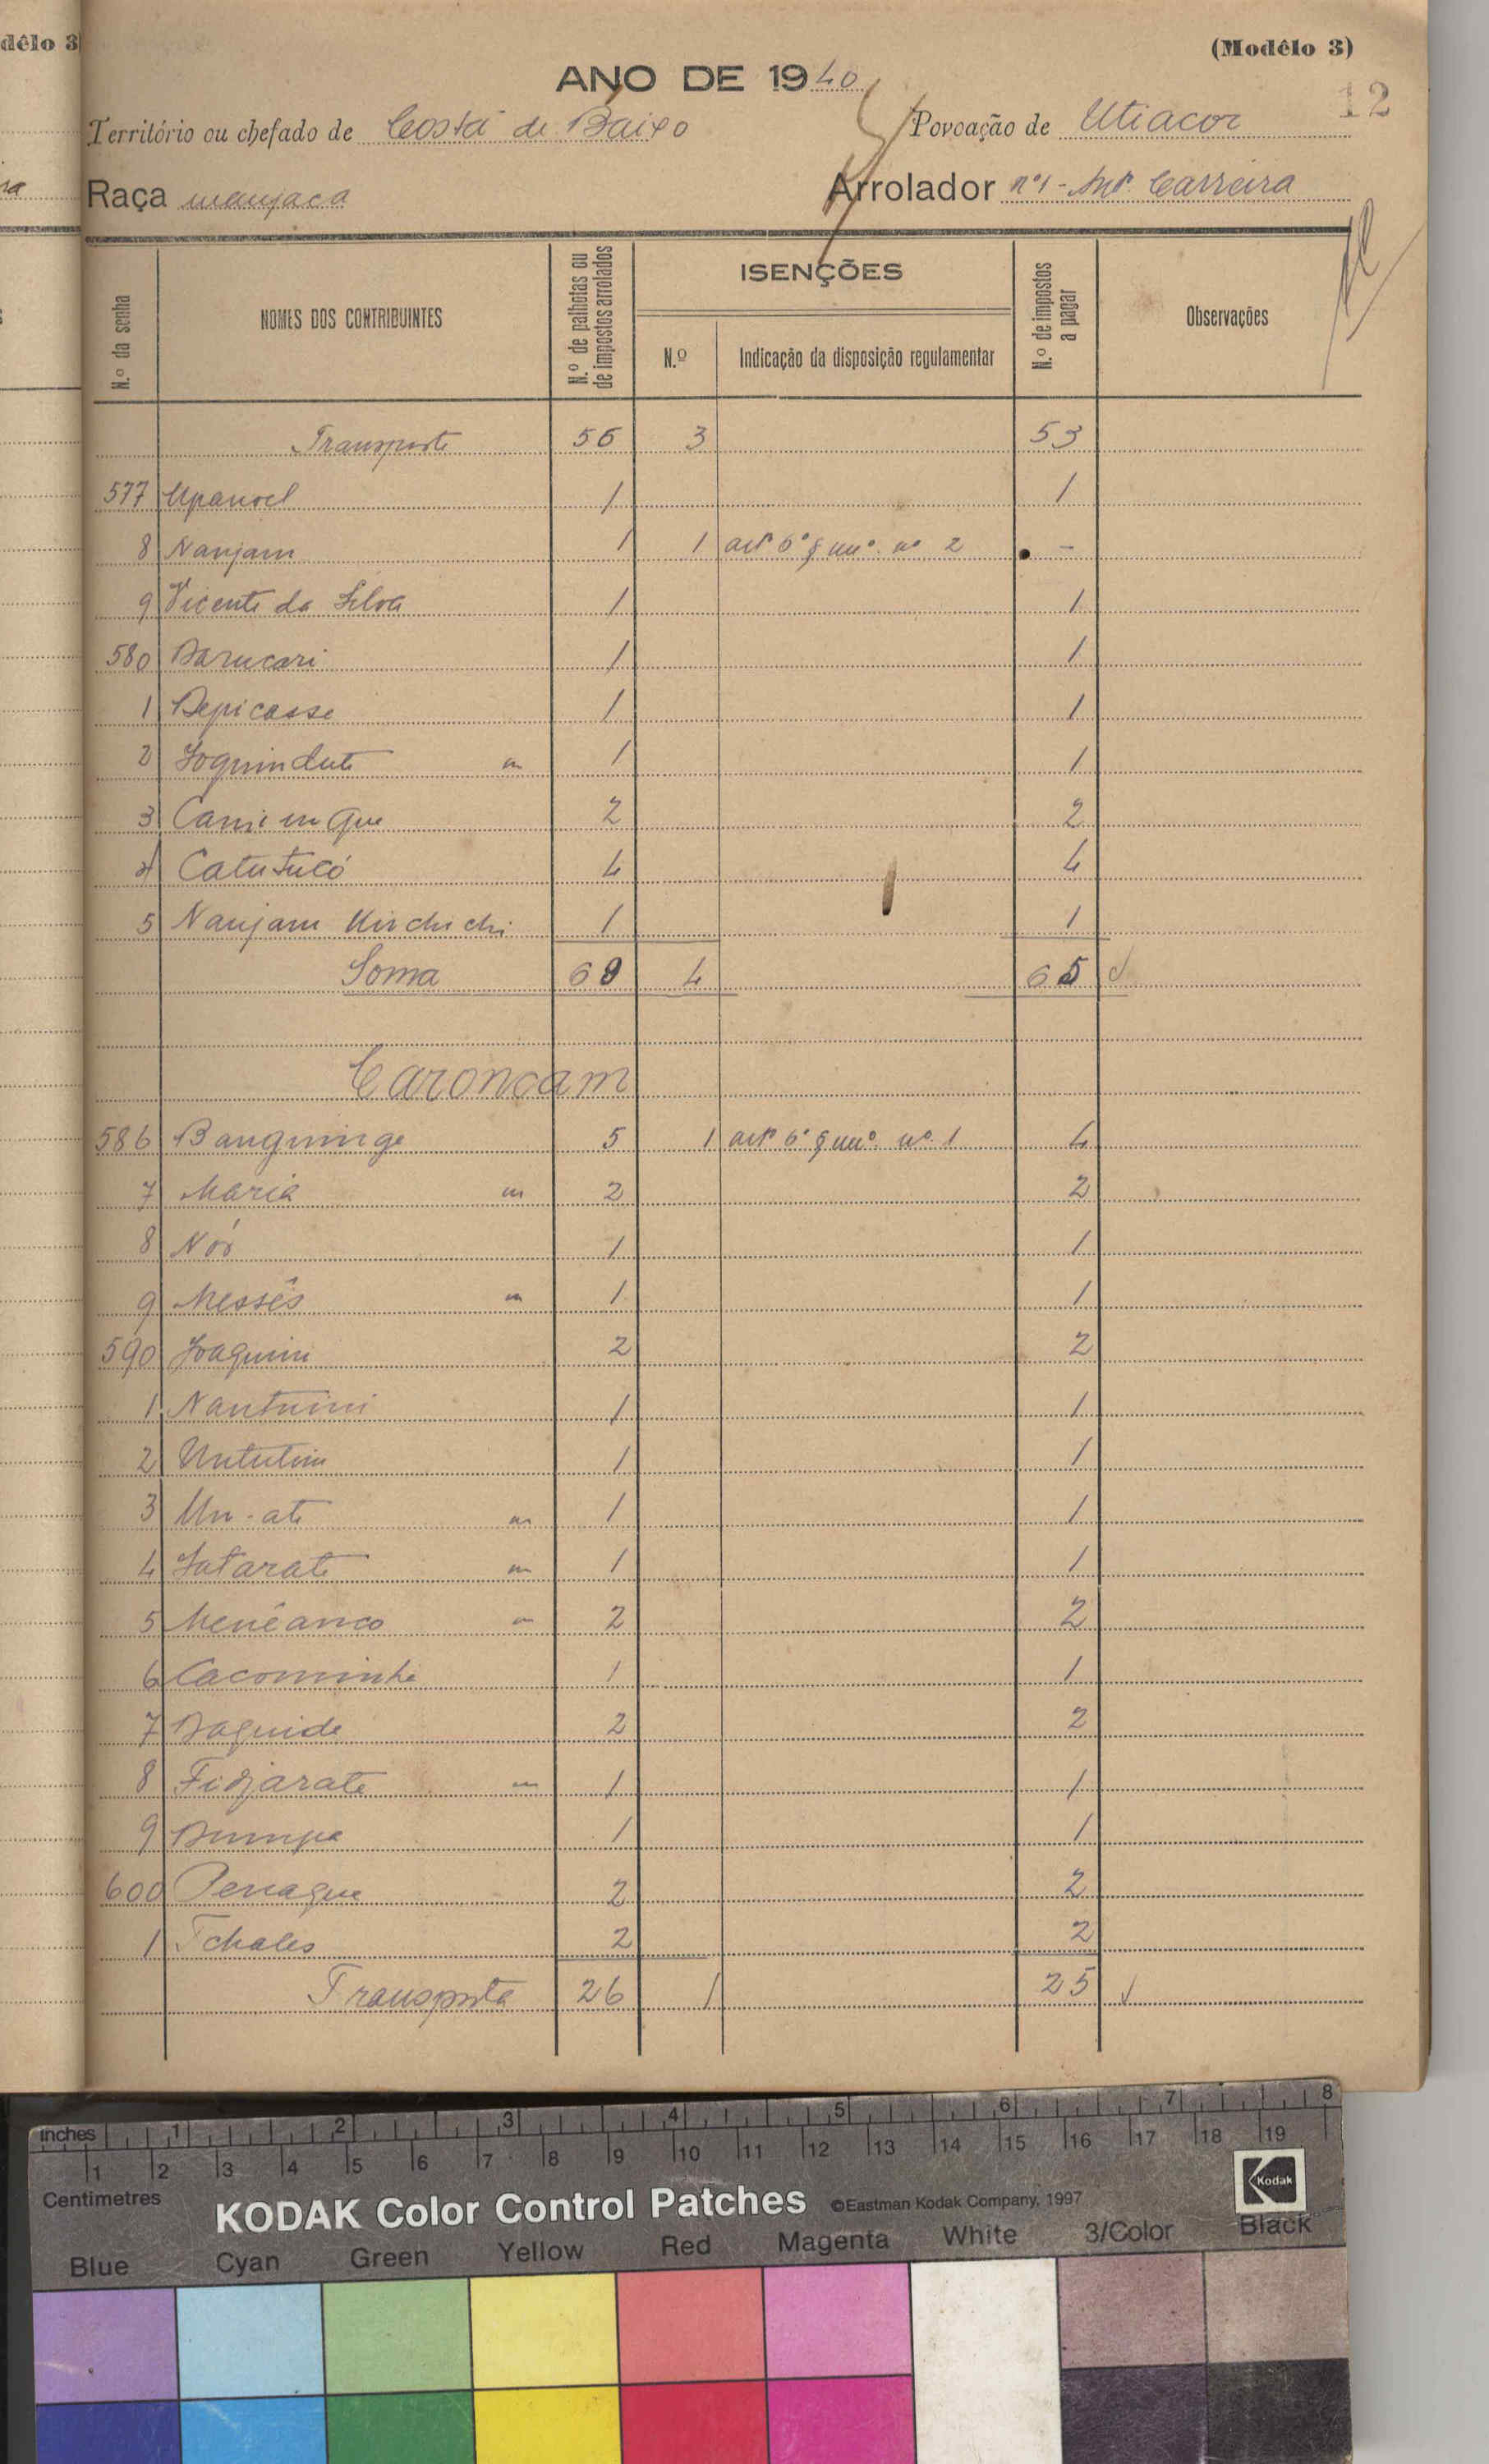 dêlo 3
(Modêlo 3)
ANO DE 1940
12
Território ou chefado de Costa de Baixo Povoação de Utiacor
Raça manjaca Arrolador nº1 - Antº Carreira
N.º da senha NOMES DOS CONTRIBUINTES N.º de palhotas ou de impostos arrolados ISENÇÕES N.º Indicação da disposição regulamentar N.º de impostos a pagar Observações
Transporte 56 3 53
577 Upanoel 1 1
8 Nanjam 1 1 artº 6º § unº nº 2 -
9 Vicente da Silva 1 1
580 Barucari 1 1
1 Bepicasse 1 1
2 Joquindute m 1 1
3 Cami um que 2 2
4 Catutucó 4 4
5 Nanjam Uinchichi 1 1
Soma 69 4 65
Caroncam
586 Banguinge 5 1 artº 6º § unº nº 1 4
7 Maria m 2 2
8 Nóó 1 1
9 Messês m 1 1
590 Joaquim 2 2
1 Nantuini 1 1
2 Untutim 1 1
3 Un-ate m 1 1
4 Jatarate m 1 1
5 Menêanco m 2 2
6 Cacominhe 1 1
7 Daguide 2 2
8 Fidjarate m 1 1
9 Dumpe 1 1
600 Penague 2 2
1 Tchales 2 2
Transporte 26 1 25
inches 1 2 3 4 5 6 7 8
1 2 3 4 5 6 7 8 9 10 11 12 13 14 15 16 17 18 19
Centimetres
KODAK Color Control Patches ©Eastman Kodak Company, 1997 Kodak
Blue Cyan Green Yellow Red Magenta White 3/Color Black